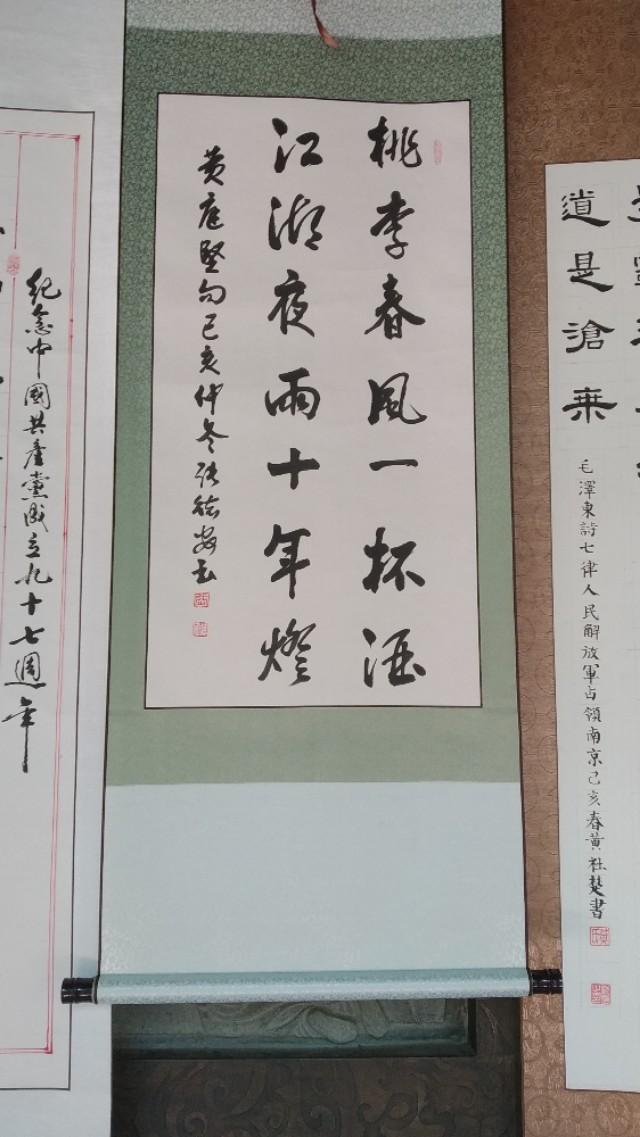 道是滄桒
毛澤東詩七律人民解放軍占領南京己亥春黃社楚書
桃李春風一杯酒
江湖夜雨十年燈
黄庭堅句己亥仲冬
紀念中國共產黨成立九十七週年